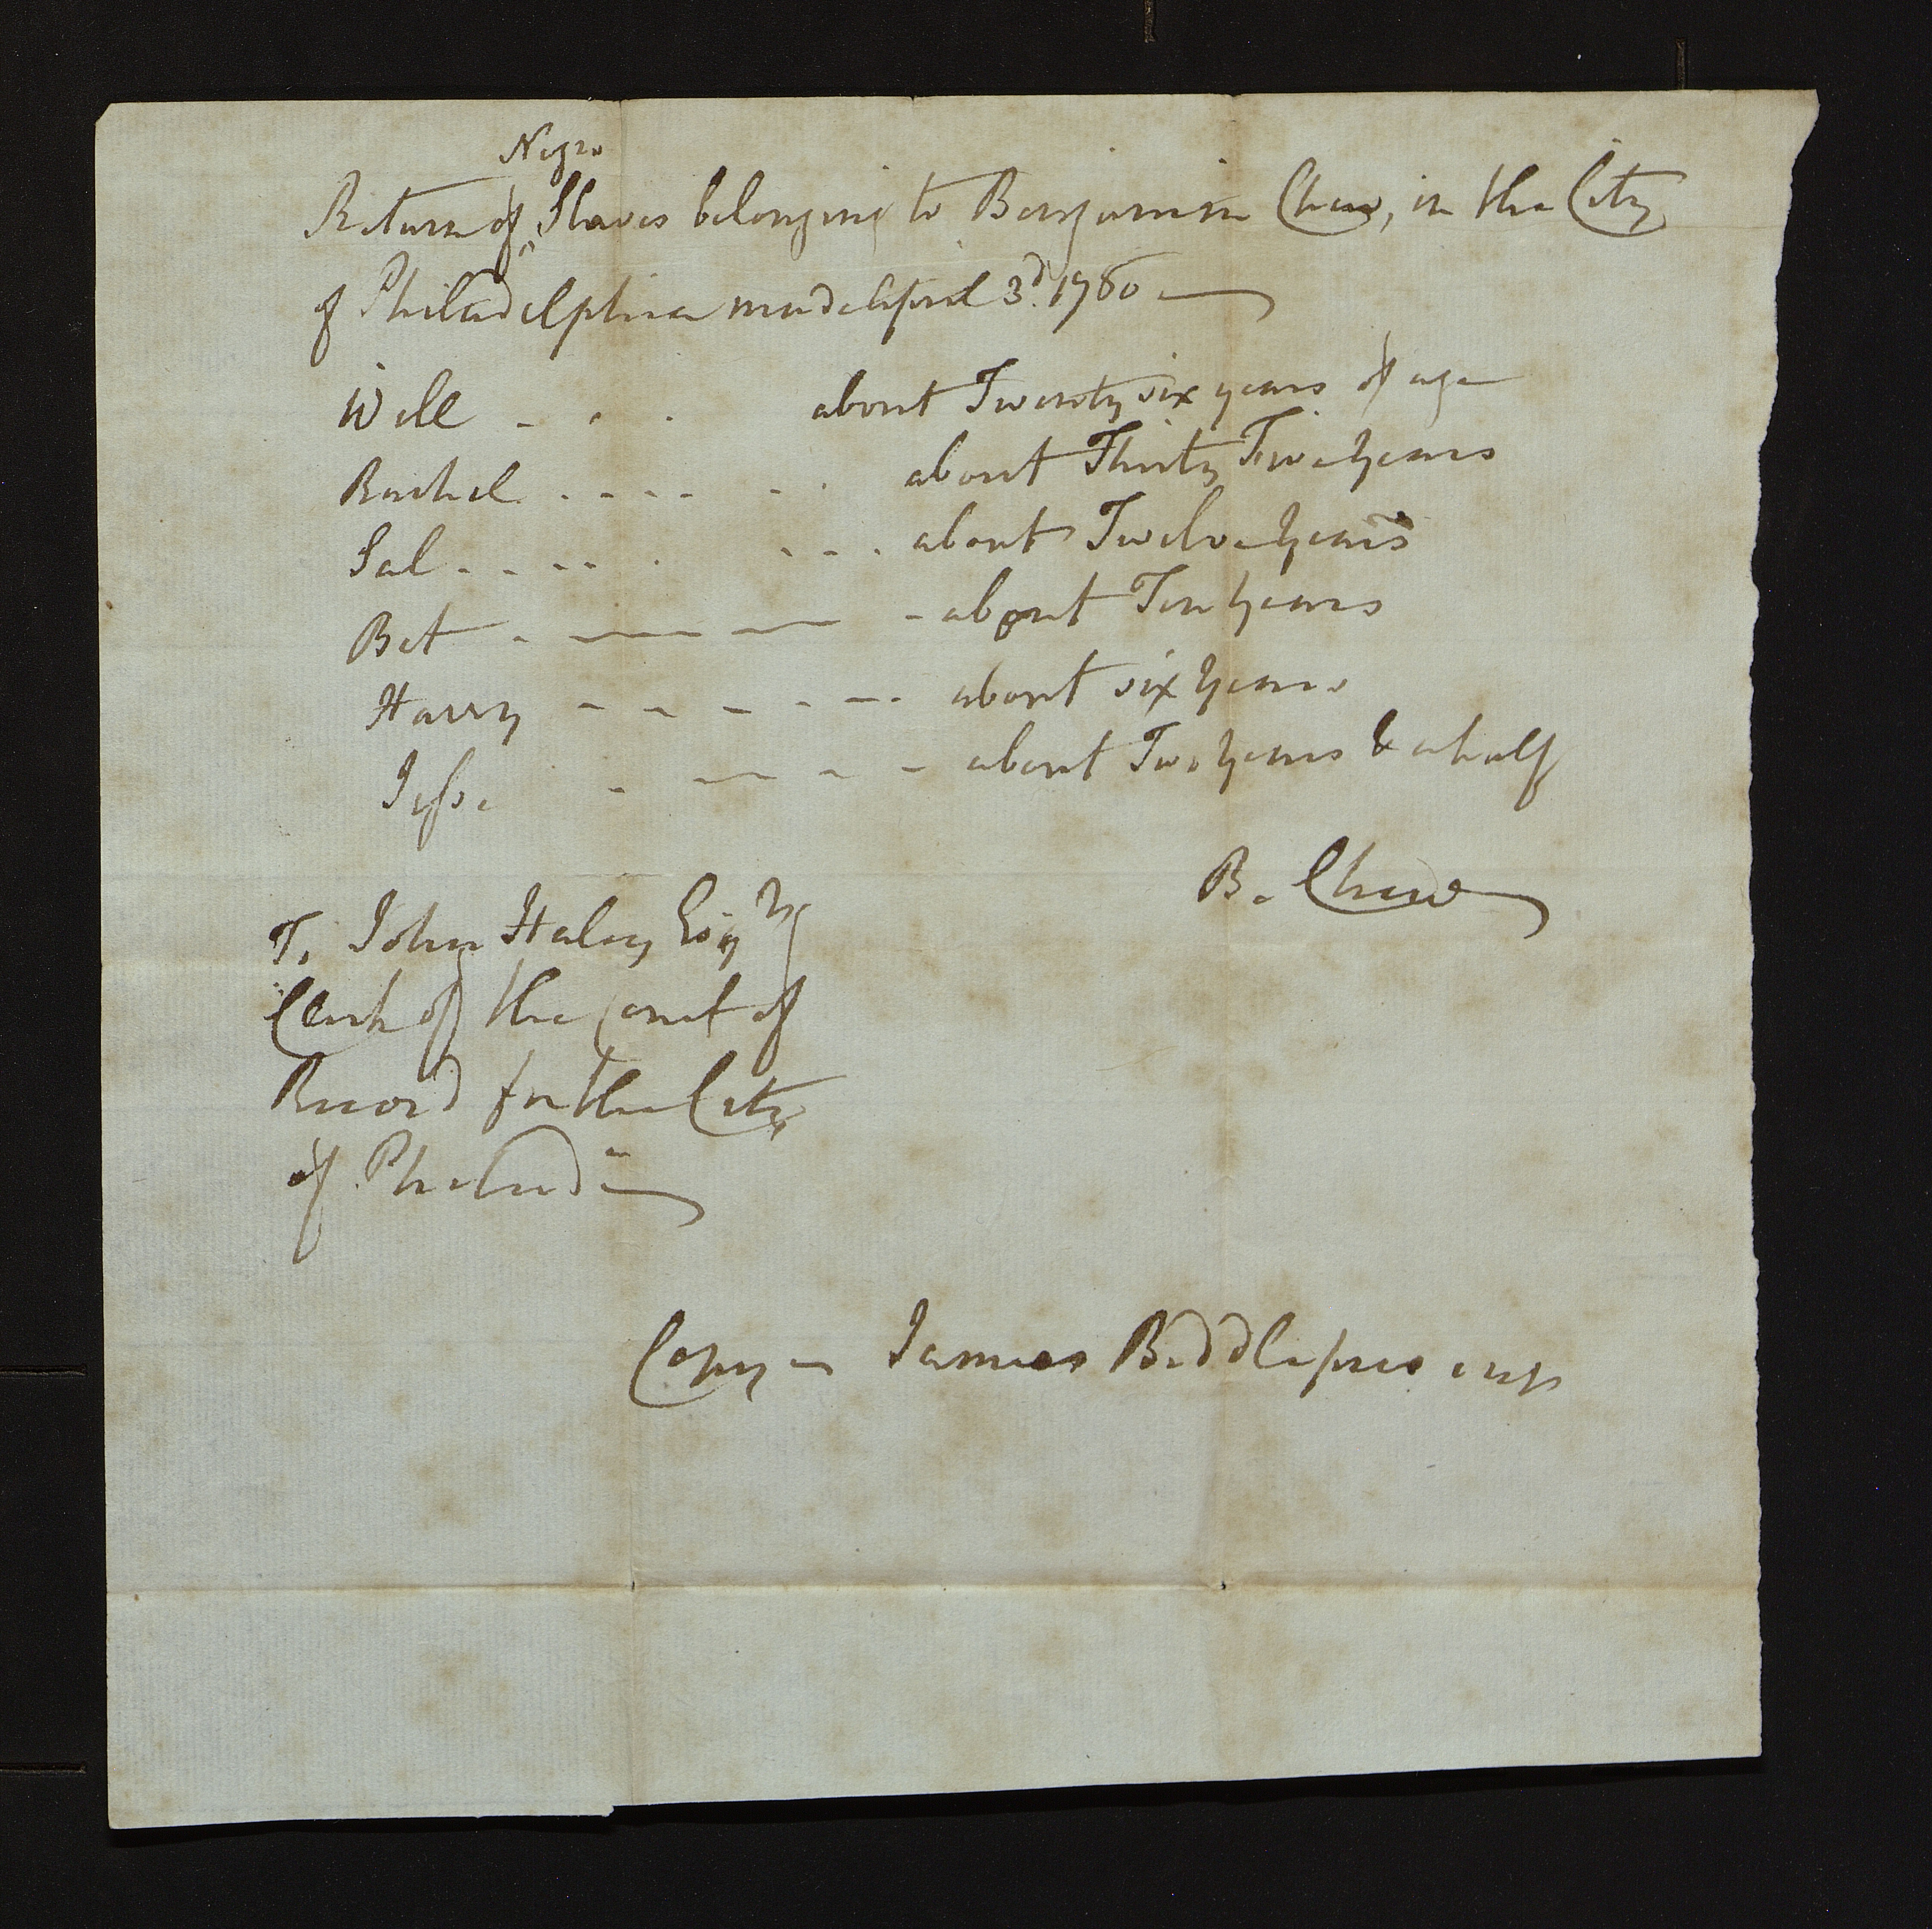 Negro
Return of ^ Slaves belonging to Benjamin Chew, in the City
of Philadelphia made April 3d. 1780
Will - - - about Twenty six years of age
Rachel - - - - - - about Thirty Two years
Sal - - - - - - - - about Twelve years
Bet - - - - - about Ten years
Harry - - - - - - about six years
Jesse - - - - - about Two years & a half
B. Chew
To John Haley Esqr
Clerk of the Court of
Record for the City
of Philada
Copy - James Biddle